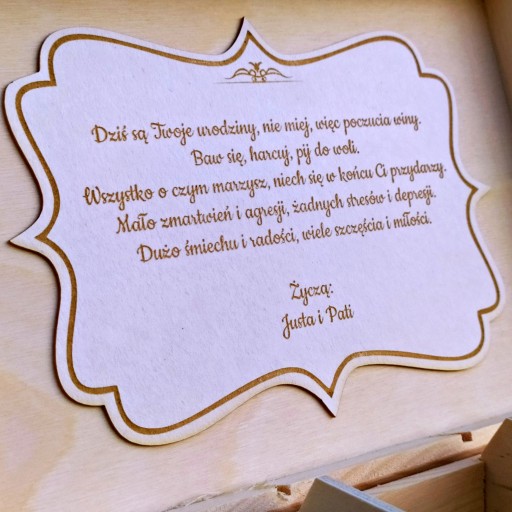 Dziś są Twoje urodziny, nie miej, więc poczucia winy.
Baw się, harcuj, pij do woli.
Wszystko o czym marzysz, niech się w końcu Ci przydarzy.
Mało zmartwień i agresji, żadnych stresów i depresji.
Dużo śmiechu i radości, wiele szczęścia i miłości.
Życzą:
Justa i Pati